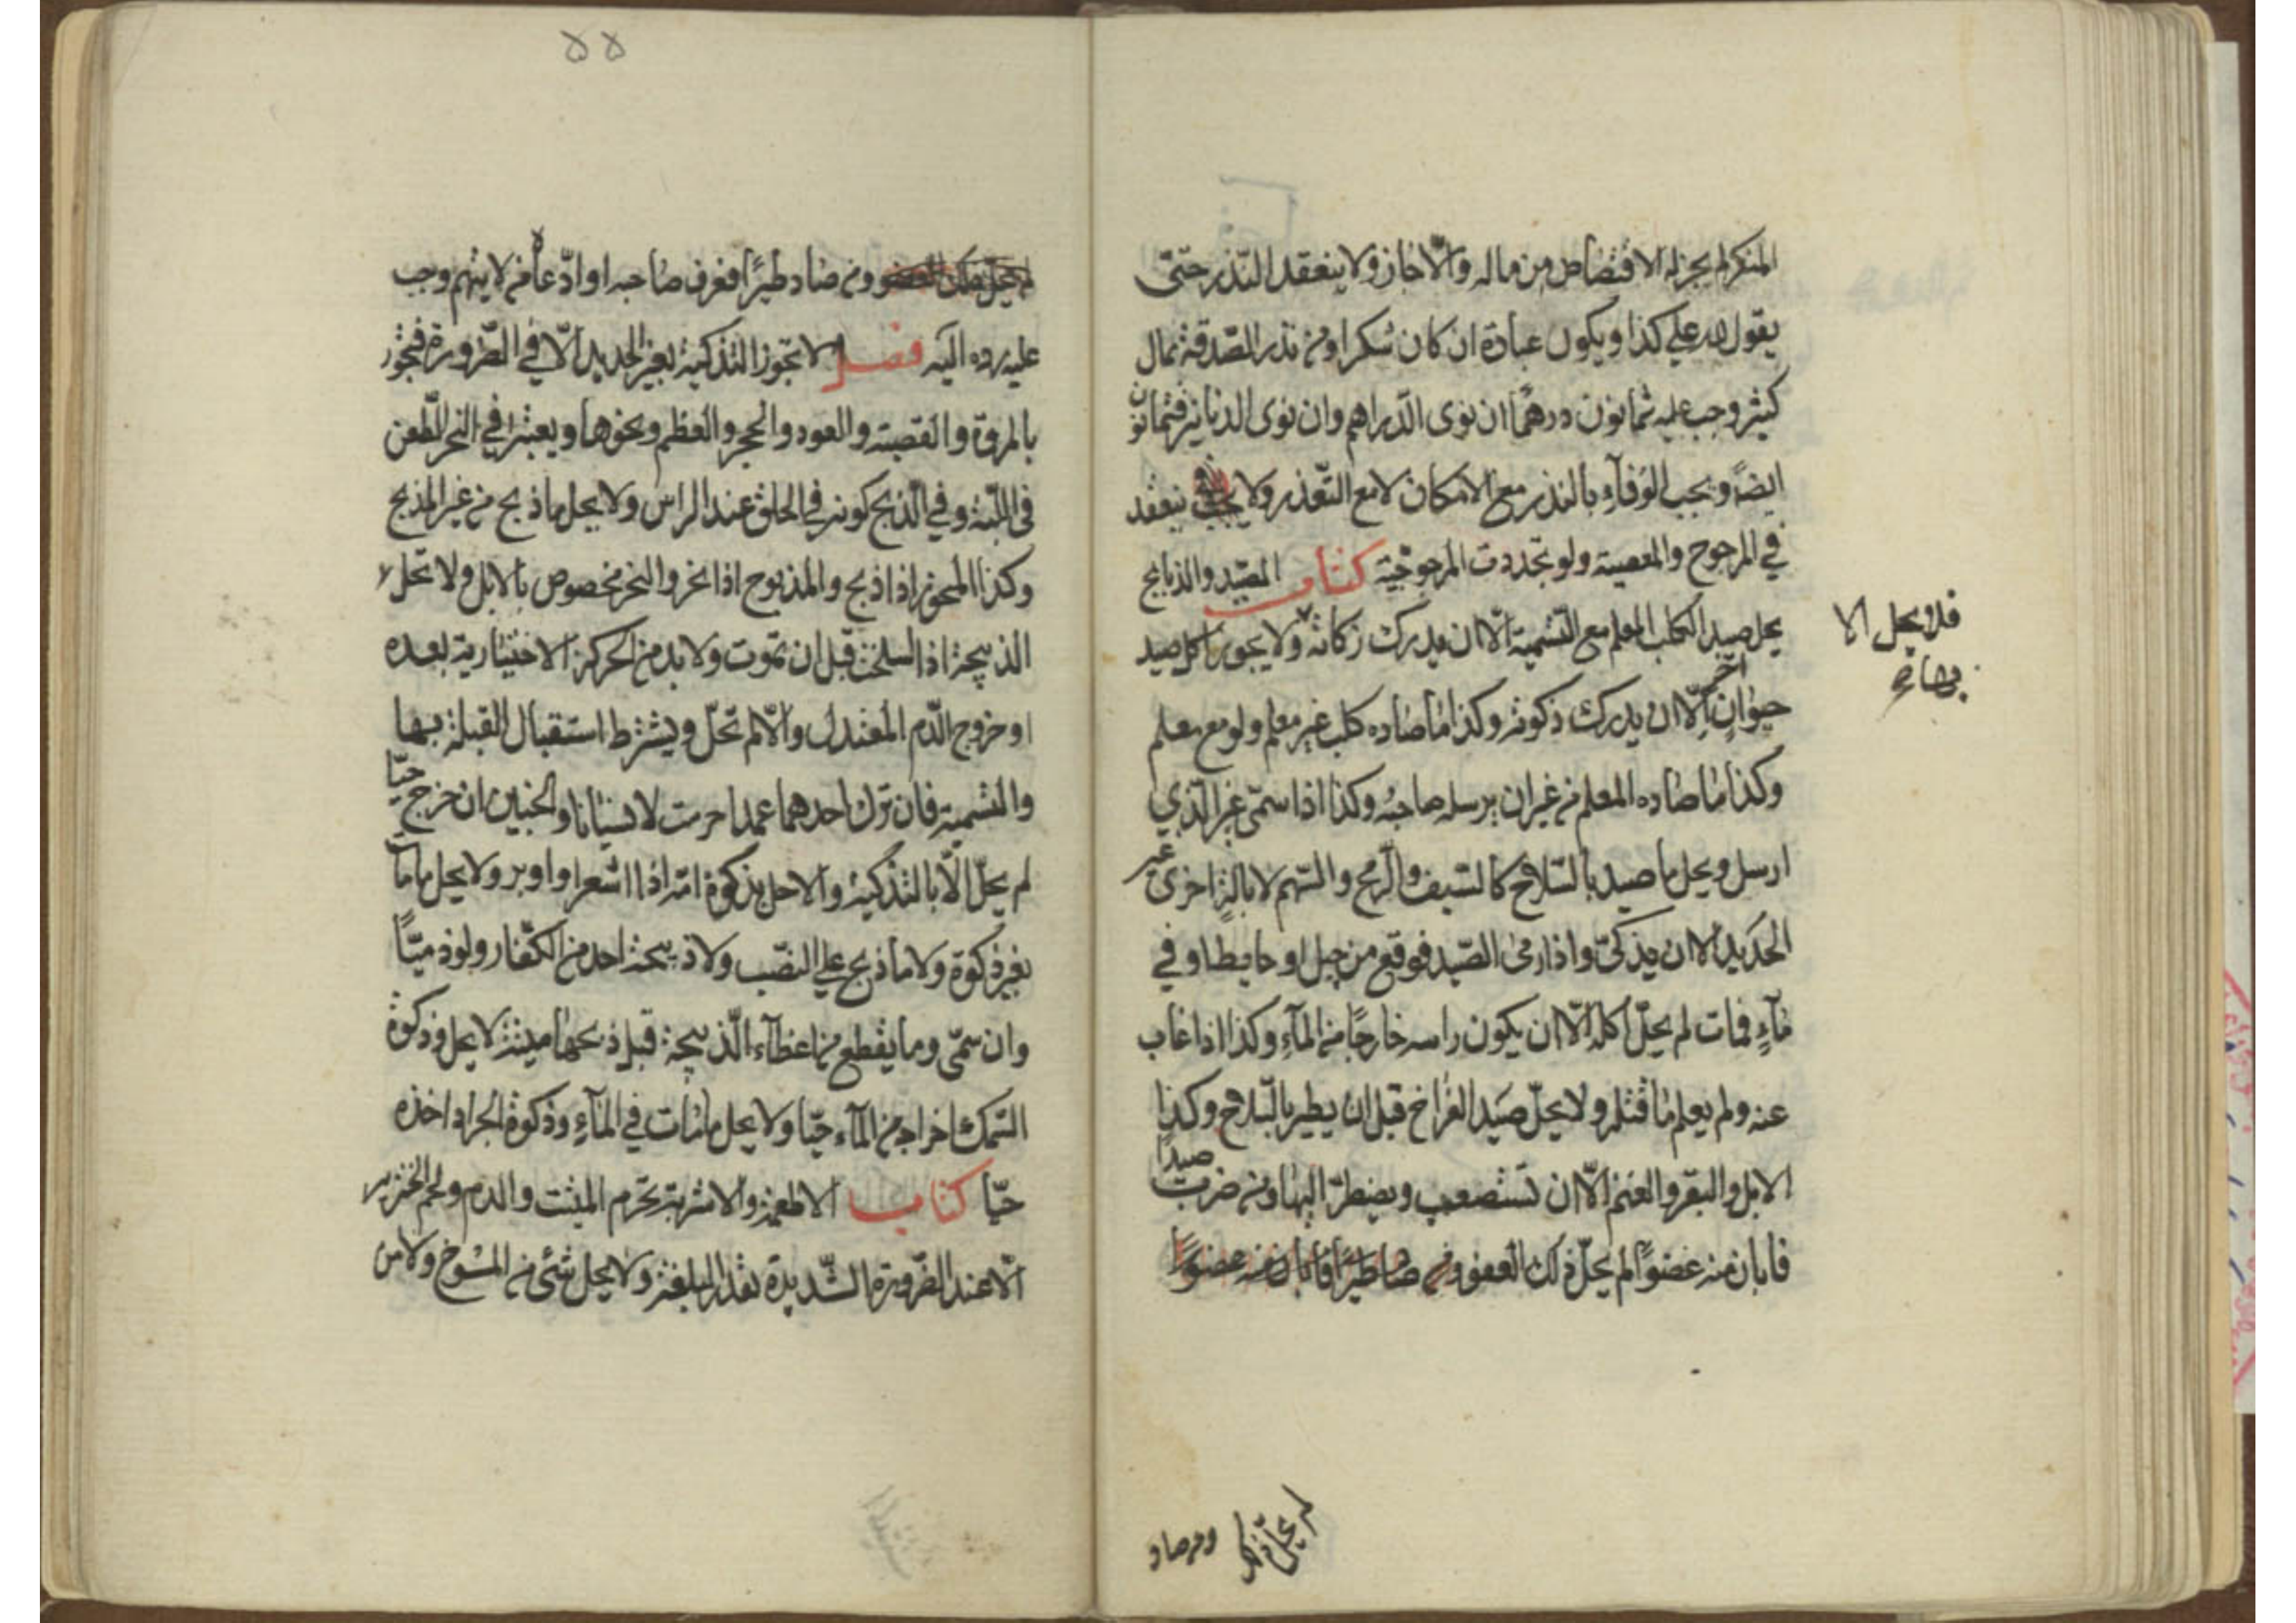 المنكر لم يجز له الاقتصاص من ماله والّا جاز ولا ينعقد النّذر حتّى
يقول لله علي كذا ويكون عبادة ان كان شكرا ومن نذر الصّدقة بمال
كثير وجب عليه ثمانون درهمًا ان نوى الدّراهم وان نوى الدنانير فثمانون
ايضًا ويجب الوفآء بالنذر مع الامكان لا مع التّعذر ولا ينعقد
في المرجوح والمعصية ولو تجددت المرجوحيّة كتاب الصّيد والذبايح
يحل صيد الكلب المعلم مع التّسمية الّا ان يدرك زكاته ولا يجوز اكل صيد
فلا يحل الا
بها صح
حيوان آخر الّا ان يدرك ذكوته وكذا ما صاده كلب غير معلم ولو مع معلم
وكذا ما صاده المعلم من غير ان يرسله صاحبه وكذا اذا سمّى غير الّذي
ارسل ويحل ما صيد بالسّلاح كالسّيف والرّمح والسّهم لا بالة اخرى غير
الحديد الا ان يذكىّ واذا رمى الصّيد فوقع من جبل او حايط او في
مآءٍ فمات لم يحلّ اكله الّا ان يكون راسه خارجًا من المآءِ وكذا اذا غاب
عنه ولم يعلم ما قتله ولا يحلّ صيد الفراخ قبل ان يطير بالسّلاح وكذا
الابل والبقر والغنم الّا ان تستصعب ويضطرّ اليها ومن ضرب صيدًا
فابان منه عضوًا لم يحلّ ذلك العضو ومن صاد طيرًا فابان منه عضوًا
لم يحلّ ذلك
ومن صاد
۵۵
لم يحلّ ذلك العضو ومن صاد طيرًا فعرف صاحبه او ادّعاه من لا يتهم وجب
عليه رده اليه فصل لا تجوز التذكية بغير الحديد الّا في الضّرورة فتجوز
بالمروة والقصبة والعود والحجر والعظم ونحوها ويعتبر في النحر الطّعن
في اللبّة وفي الذّبح كونه في الحلق عند الراس ولا يحل ما ذبح من غير المذبح
وكذا المنحور اذا ذبح والمذبوح اذا نحر والنحر مخصوص بالابل ولا تحل
الذبيحة اذا سلخت قبل ان تموت ولا بد من الحركة الاختيارية بعده
او خروج الدّم المعتدل والّا لم تحلّ ويشترط استقبال القبلة بها
والتسمية فان ترك احدهما عمدا حرمت لا نسيانا والجنين ان خرج حيّا
لم يحلّ الّا بالتذكية والا حل بذكوة امّه اذا اشعر او اوبر ولا يحل ما مات
بغير ذكوة ولا ما ذبح على النصّب ولا ذبيحة احد من الكفّار ولو ذميّاً
وان سمّى وما يقطع من اعضآء الذّبيحة قبل ذبحها ميتة لا يحل وذكوة
السّمك اخراجه من المآء حيّا ولا يحل ما مات في المآءِ وذكوة الجراد اخذه
حيّا كتاب الاطعمة والاشربة تحرم الميتة والدم ولحم الخنزير
الّا عند الضّرورة الشّديدة بقدر البلغة ولا يحل شئ من المسوخ ولا من